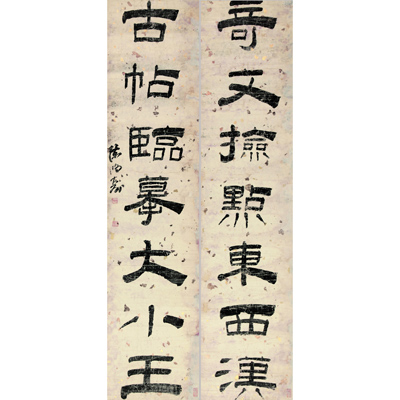 奇文撿點東西漢
古帖臨摹大小王